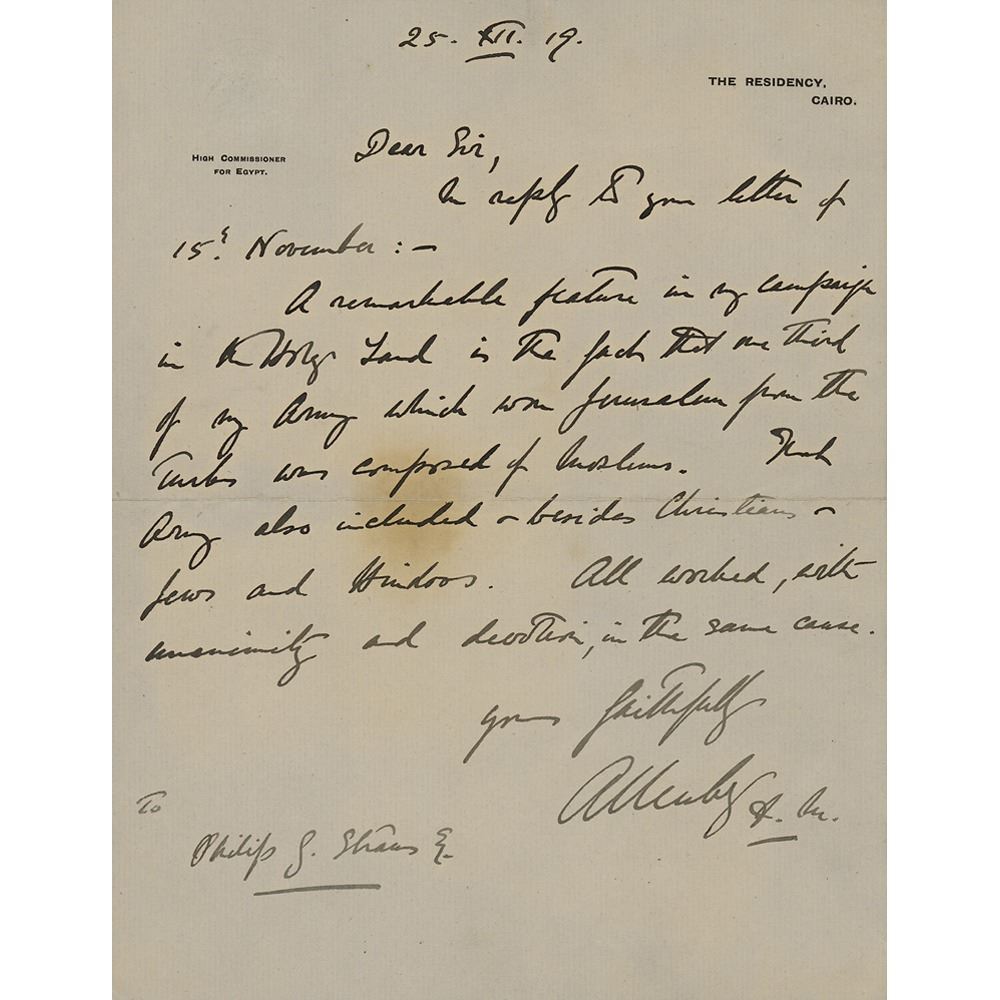 25. XII. 19.
THE RESIDENCY,
CAIRO.
HIGH COMMISSIONER
FOR EGYPT.
Dear Sir,
In reply to your letter of
15th November : —
A remarkable feature in my campaign
in the Holy Land is the fact that one third
of my Army which won Jerusalem from the
Turks was composed of Moslems. That
Army also included - besides Christians -
Jews and Hindoos. All worked, with
unanimity and devotion, in the same cause.
Yours faithfully
Allenby F. M.
To
Philip G. Straus Esq.